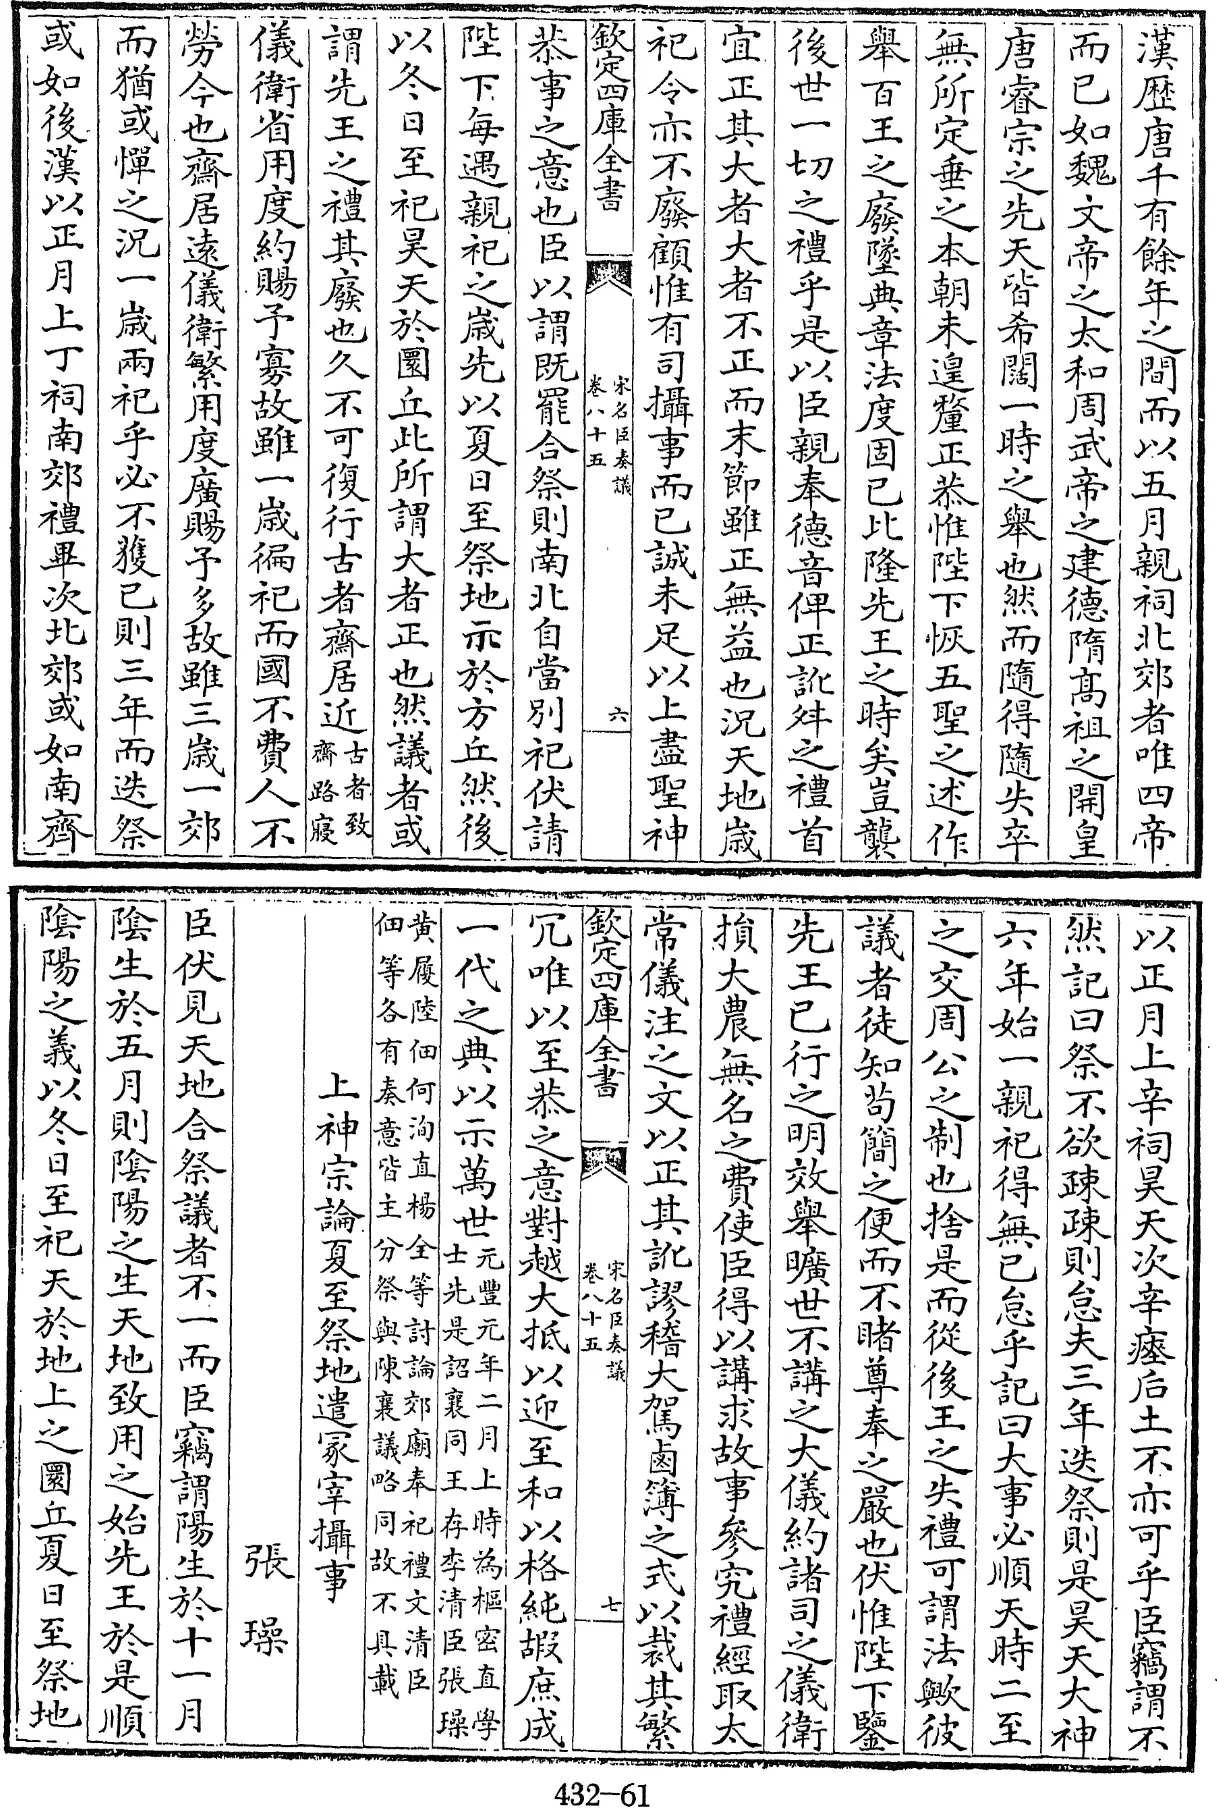 漢歴唐千有餘年之間而以五月親祠北郊者唯四帝
而已如魏文帝之太和周武帝之建德隋髙祖之開皇
唐睿宗之先天皆希闊一時之舉也然而隨得隨失卒
無所定垂之本朝未遑釐正恭惟陛下恢五聖之述作
舉百王之廢墜典章法度固已比隆先王之時矣豈襲
後世一切之禮乎是以臣親奉德音俾正訛舛之禮首
宜正其大者大者不正而末節雖正無益也況天地歳
祀令亦不廢顧惟有司攝事而已誠未足以上盡聖神
欽定四庫全書
宋名臣奏議
卷八十五
六
恭事之意也臣以謂既罷合祭則南北自當別祀伏請
陛下每遇親祀之歳先以夏日至祭地示於方丘然後
以冬日至祀昊天於圜丘此所謂大者正也然議者或
謂先王之禮其廢也久不可復行古者齋居近古者致齋路寢
儀衛省用度約賜予寡故雖一歳徧祀而國不費人不
勞今也齋居遠儀衛繁用度廣賜予多故雖三歳一郊
而猶或憚之況一歳兩祀乎必不獲已則三年而迭祭
或如後漢以正月上丁祠南郊禮畢次北郊或如南齊
以正月上辛祠昊天次辛瘞后土不亦可乎臣竊謂不
然記曰祭不欲疎疎則怠夫三年迭祭則是昊天大神
六年始一親祀得無已怠乎記曰大事必順天時二至
之交周公之制也捨是而從後王之失禮可謂法歟彼
議者徒知茍簡之便而不睹尊奉之嚴也伏惟陛下鑒
先王已行之明效舉曠世不講之大儀約諸司之儀衛
損大農無名之費使臣得以講求故事參究禮經取太
常儀注之文以正其訛謬稽大駕鹵簿之式以裁其繁
欽定四庫全書
宋名臣奏議
卷八十五
七
冗唯以至恭之意對越大抵以迎至和以格純嘏庶成
一代之典以示萬世元豐元年二月上時為樞密直學士先是詔襄同王存李清臣張璪
黄履陸佃何洵直楊全等討論郊廟奉祀禮文清臣佃等各有奏意皆主分祭與陳襄議略同故不具載
上神宗論夏至祭地遣冢宰攝事
張璪
臣伏見天地合祭議者不一而臣竊謂陽生於十一月
陰生於五月則陰陽之生天地致用之始先王於是順
陰陽之義以冬日至祀天於地上之圜丘夏日至祭地
432-61